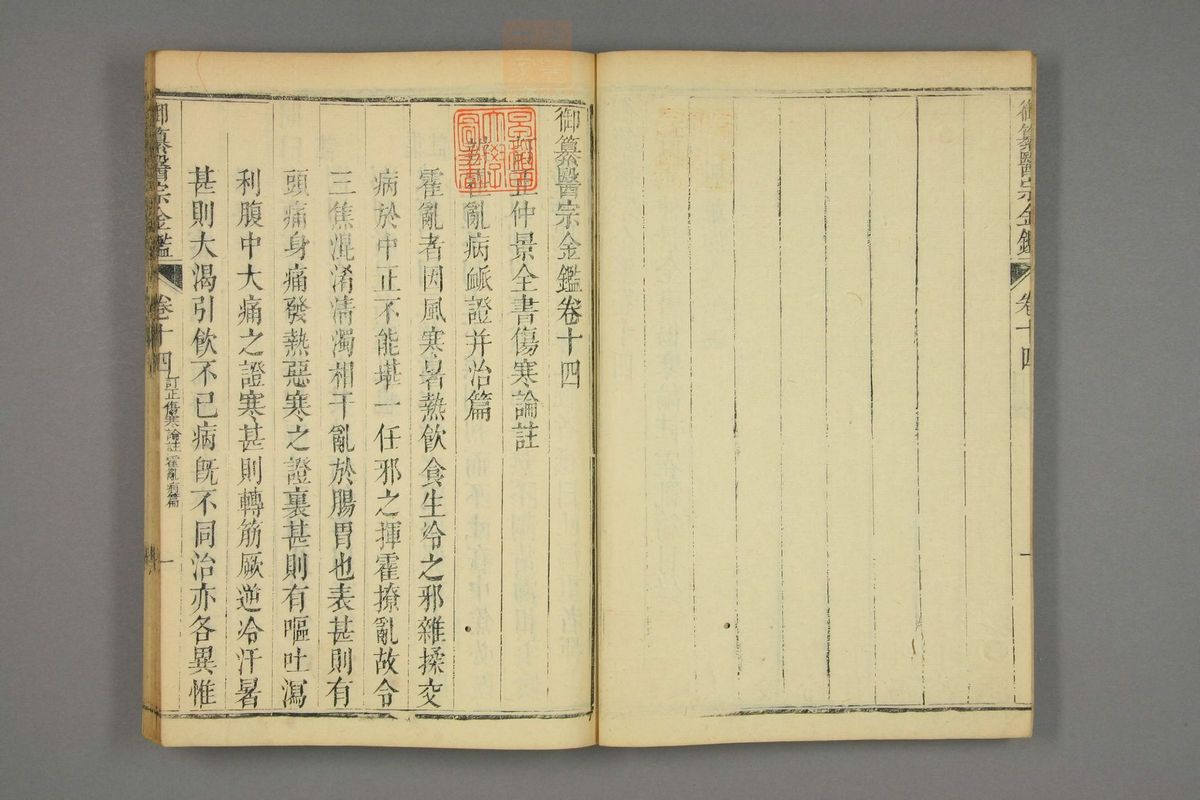 御纂醫宗金鑑 卷十四 一
御纂醫宗金鑑卷十四
訂正仲景全書傷寒論註
辨霍亂病脈證并治篇
霍亂者因風寒暑熱飲食生冷之邪雜揉交
病於中正不能堪一任邪之揮霍撩亂故令
三焦混淆清濁相干亂於腸胃也表甚則有
頭痛身痛發熱惡寒之證裏甚則有嘔吐瀉
利腹中大痛之證寒甚則轉筋厥逆冷汗暑
甚則大渴引飲不已病既不同治亦各異惟
御纂醫宗金鑑 卷十四 訂正傷寒論註 霍亂病篇 一